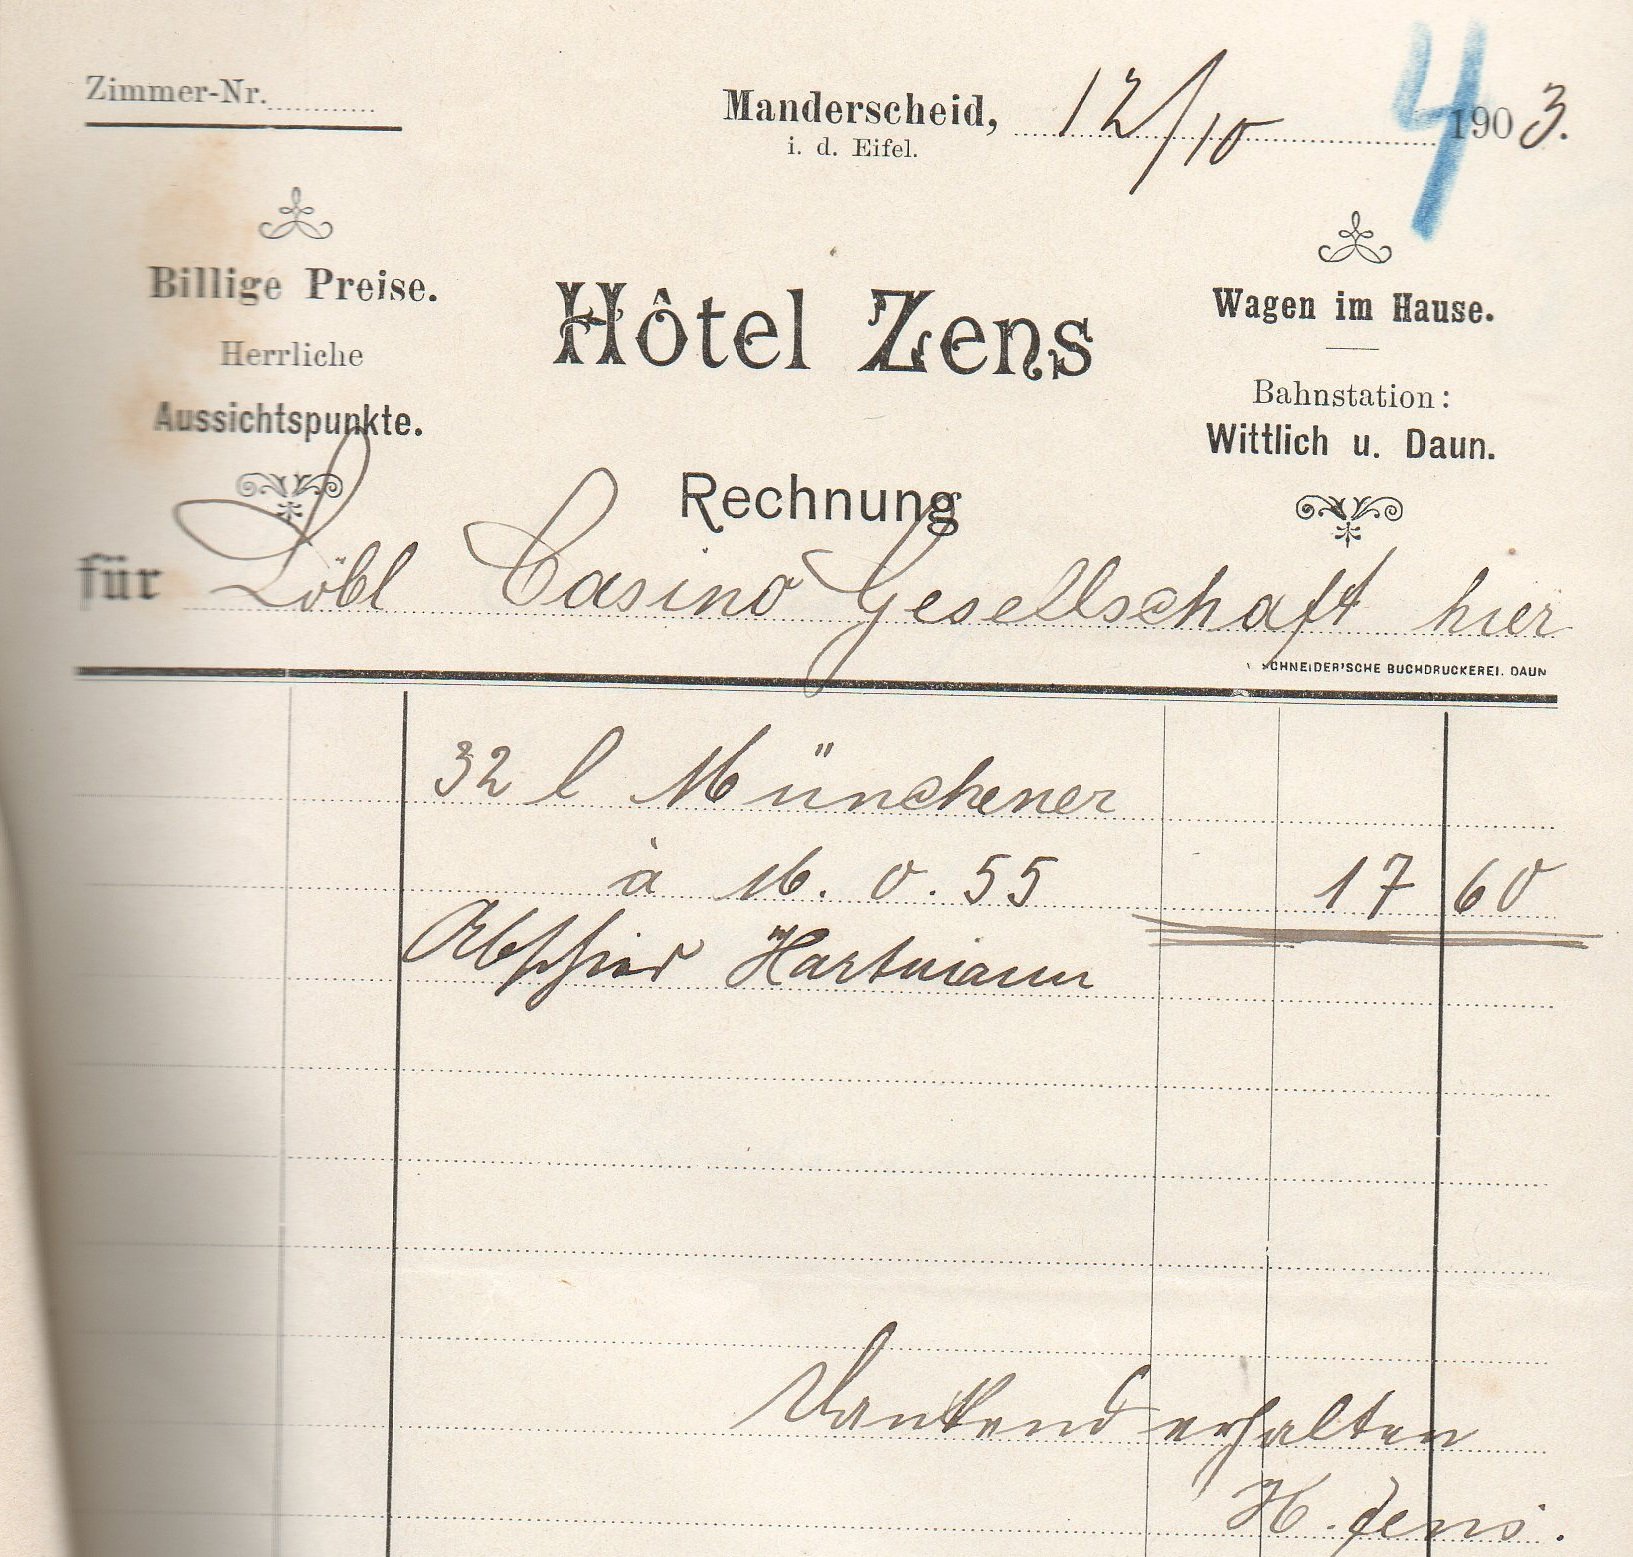 Zimmer-Nr.
Manderscheid, 12/10 1903.
i. d. Eifel.
4
Billige Preise.
Herrliche
Aussichtspunkte.
Hôtel Zens
Wagen im Hause.
Bahnstation:
Wittlich u. Daun.
Rechnung
für Löbl Casino Gesellschaft hier
SCHNEIDER'SCHE BUCHDRUCKEREI. DAUN
32 l Münchener
à M. 0.55 17 60
Abschied Hartmann
Dankend erhalten
H. Zens.